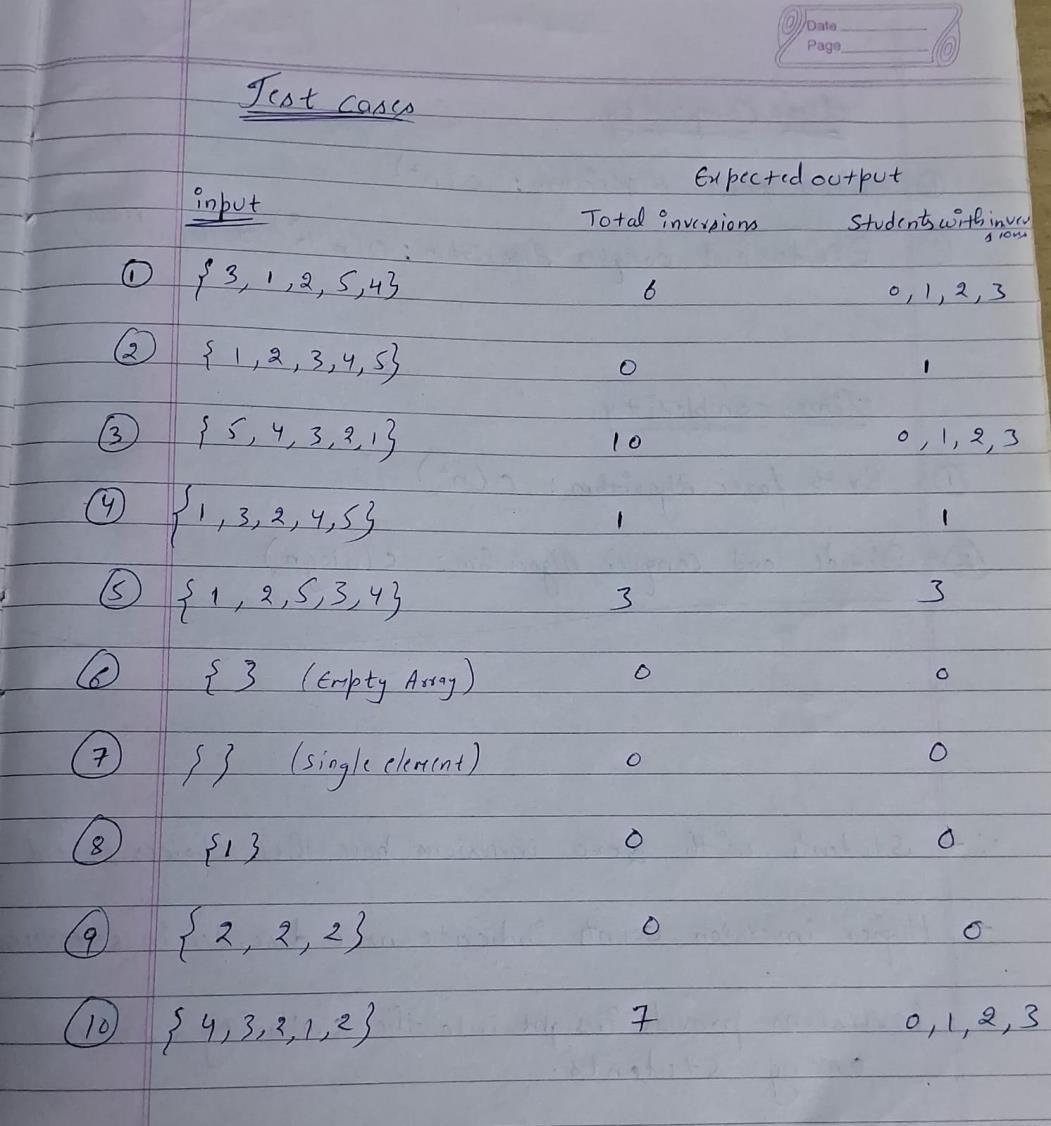 Date
Page
Test cases
Expected output
input Total inversions Students with inver
sions
① { 3, 1, 2, 5, 4} 6 0, 1, 2, 3
② { 1, 2, 3, 4, 5} 0 1
③ { 5, 4, 3, 2, 1} 10 0, 1, 2, 3
④ { 1, 3, 2, 4, 5} 1 1
⑤ { 1, 2, 5, 3, 4} 3 3
⑥ { } (Empty Array) 0 0
⑦ { } (single element) 0 0
⑧ {1} 0 0
⑨ { 2, 2, 2} 0 0
⑩ { 4, 3, 2, 1, 2} 7 0, 1, 2, 3